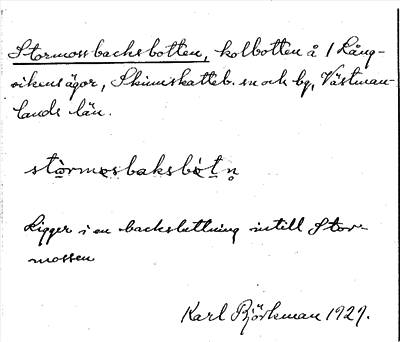 Stormossbacksbotten, kolbotten å 1 Lång-
vikens ägor, Skinnskatteb. sn och bg, Västman-
lands län.
stòrmosbaksbòtn̥
Ligger i en backsluttning intill Stor-
mossen
Karl Björkman 1929.